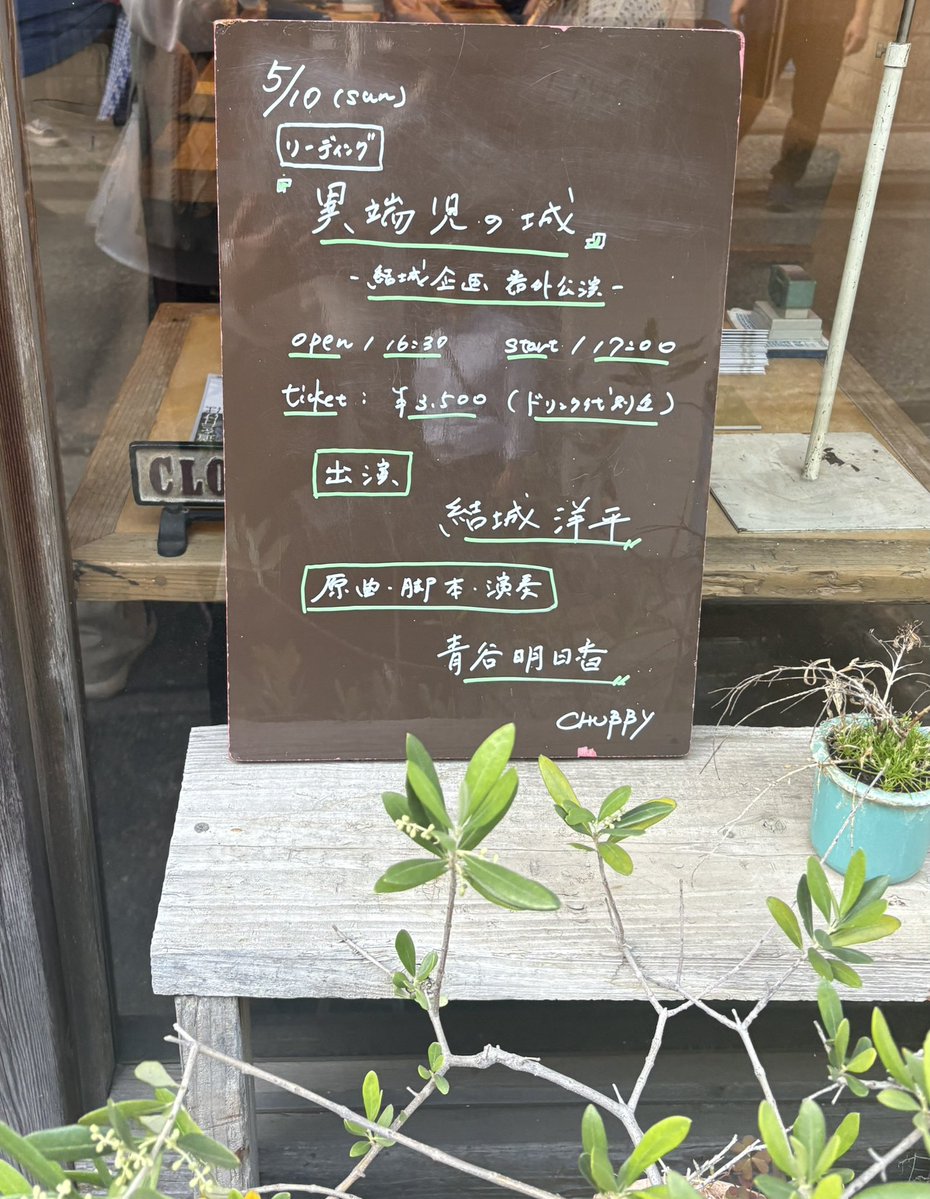 5/10 (sun)
リーディング
『異端児の城』
-結城企画 番外公演-
open / 16:30 start / 17:00
ticket: ¥3.500 (ドリンク代別途)
出演
結城 洋平
原曲・脚本・演奏
青谷 明日香
CHUBBY
CLO